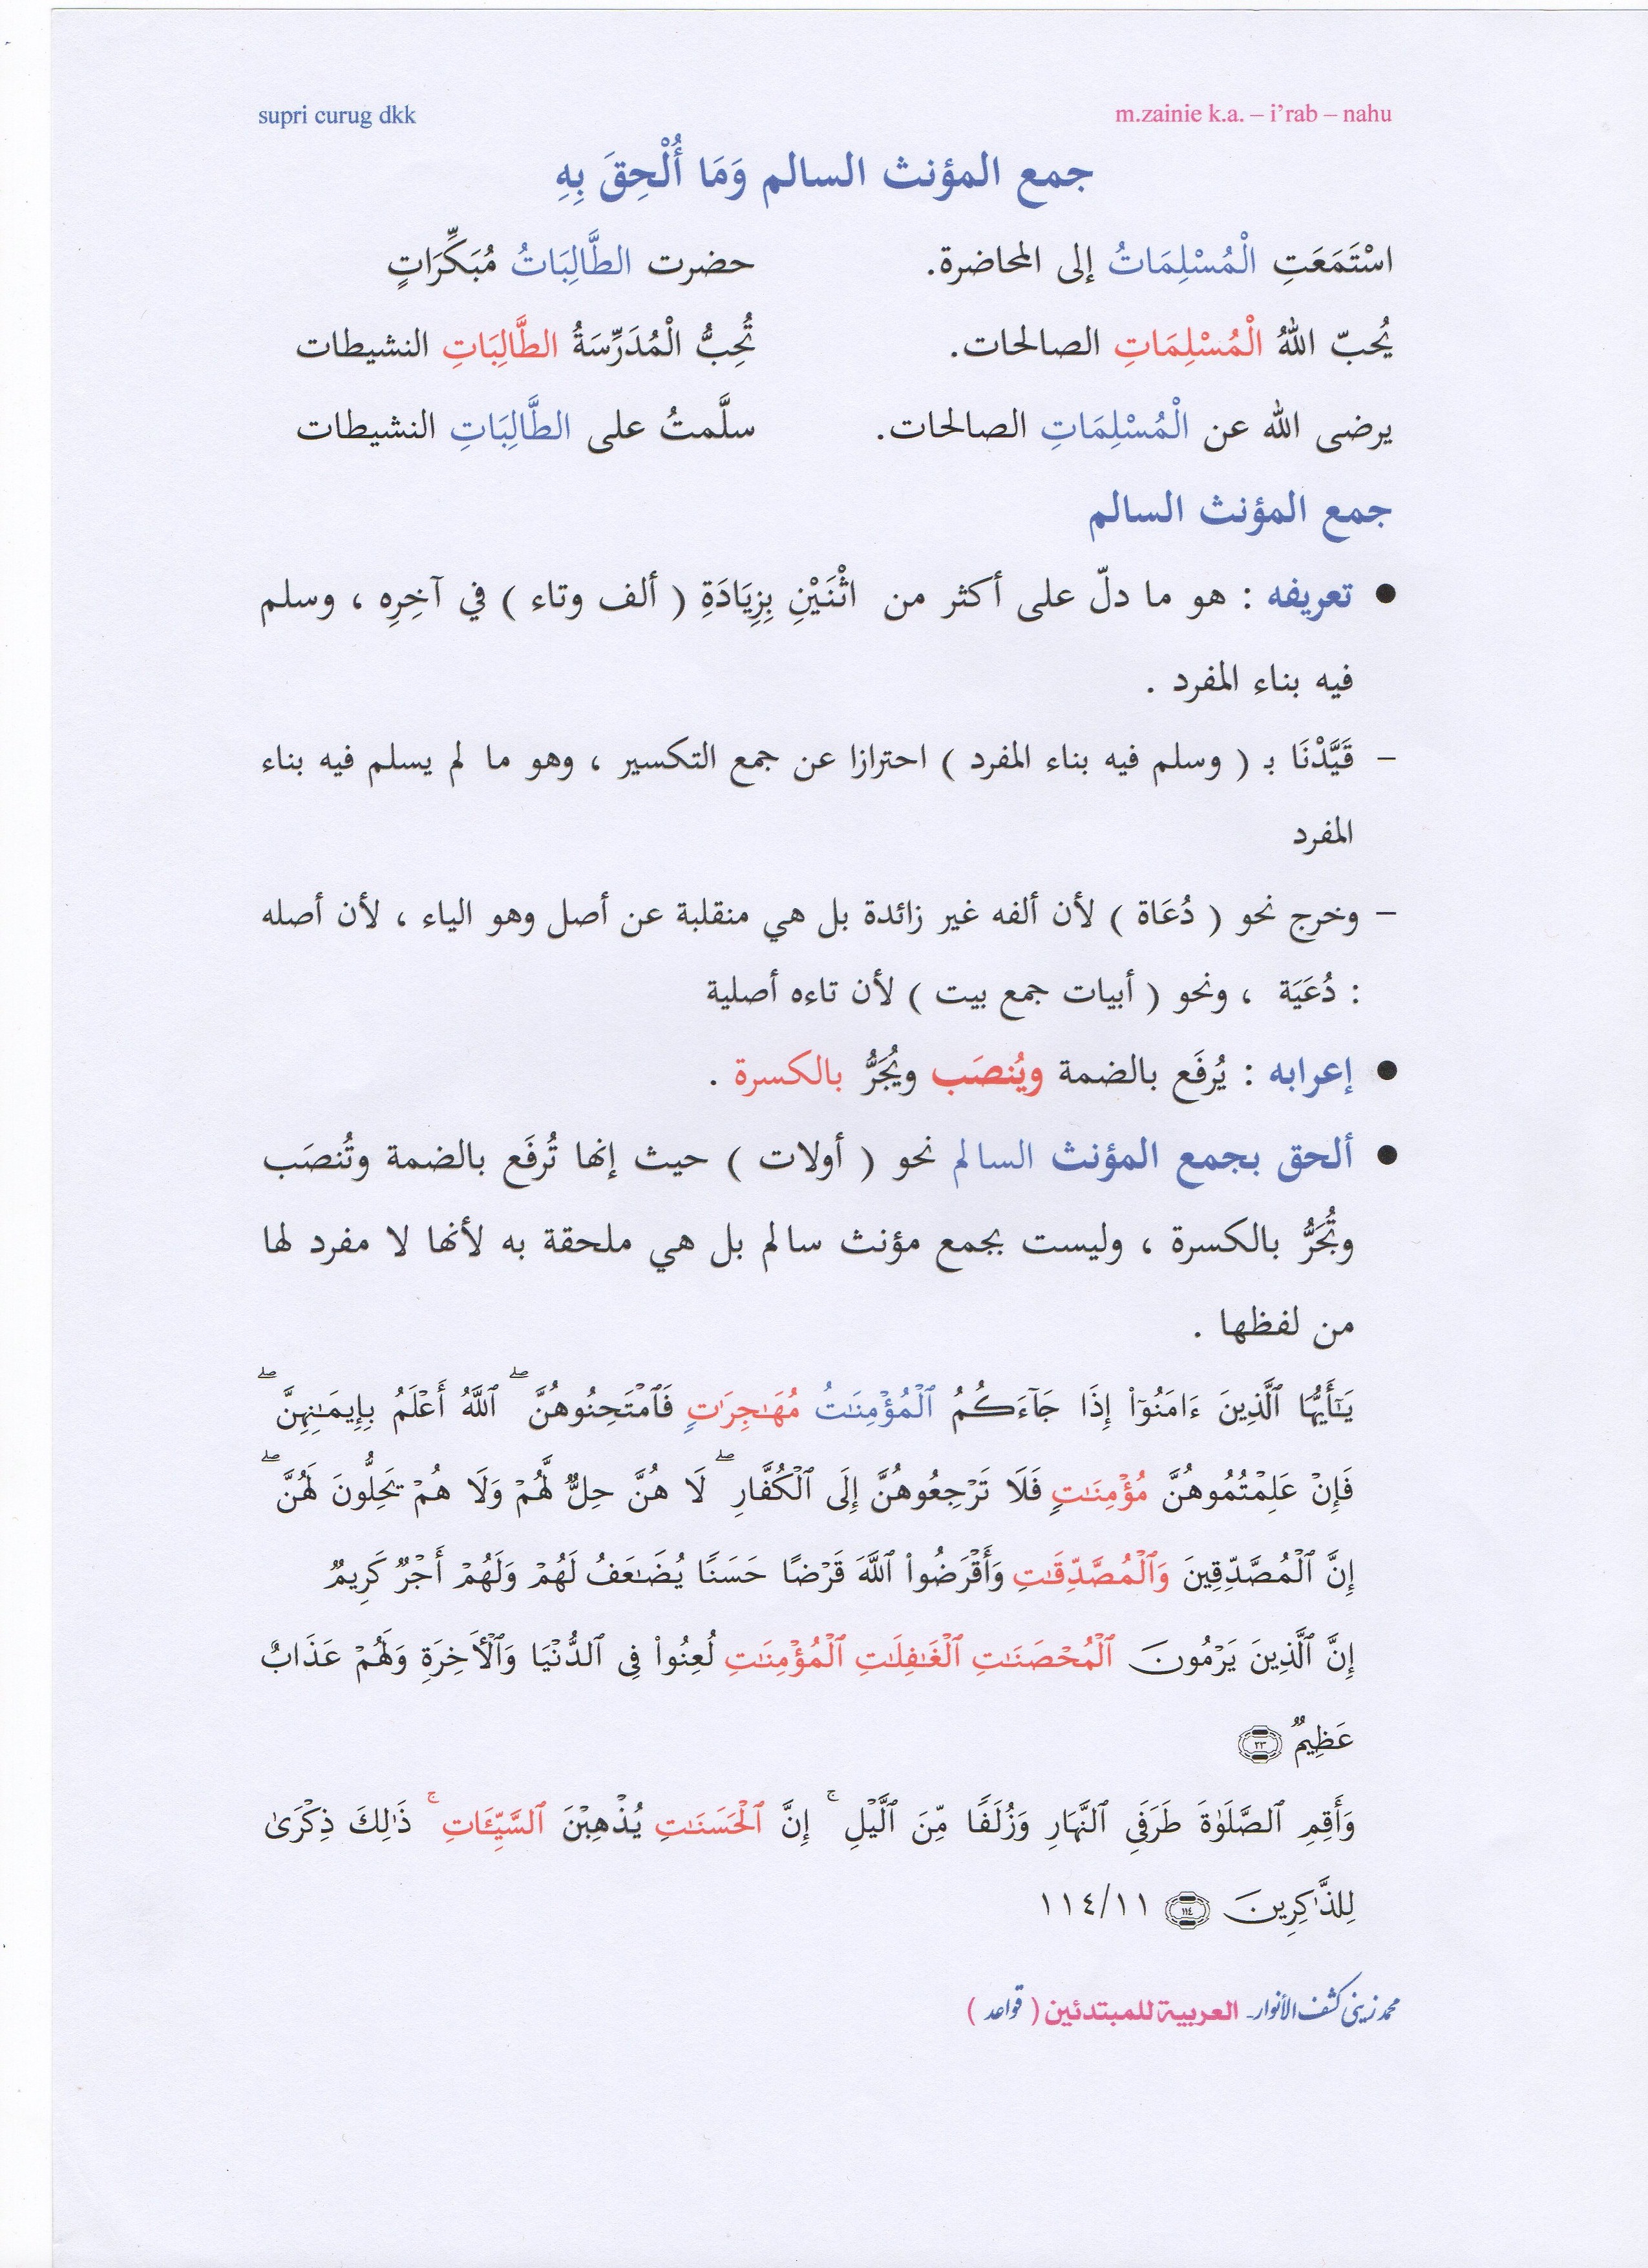 supri curug dkk
m.zainie k.a. – i’rab – nahu
جمع المؤنث السالم وَمَا أُلْحِقَ بِهِ
اسْتَمَعَتِ الْمُسْلِمَاتُ إلى المحاضرة.
حضرت الطَّالِبَاتُ مُبَكِّرَاتٍ
يُحبّ اللهُ الْمُسْلِمَاتِ الصالحات.
تُحِبُّ الْمُدَرِّسَةُ الطَّالِبَاتِ النشيطات
يرضى الله عن الْمُسْلِمَاتِ الصالحات.
سلَّمتُ على الطَّالِبَاتِ النشيطات
جمع المؤنث السالم
● تعريفه : هو ما دلّ على أكثر من اثْنَيْنِ بِزِيَادَةِ ( ألف وتاء ) في آخِرِه ، وسلم
فيه بناء المفرد .
– قَيَّدْنَا بـ ( وسلم فيه بناء المفرد ) احترازا عن جمع التكسير ، وهو ما لم يسلم فيه بناء
المفرد
– وخرج نحو ( دُعَاة ) لأن ألفه غير زائدة بل هي منقلبة عن أصل وهو الياء ، لأن أصله
: دُعَيَة ، ونحو ( أبيات جمع بيت ) لأن تاءه أصلية
● إعرابه : يُرفَع بالضمة ويُنصَب ويُجَرُّ بالكسرة .
● ألحق بجمع المؤنث السالم نحو ( أولات ) حيث إنها تُرفَع بالضمة وتُنصَب
وتُجَرُّ بالكسرة ، وليست بجمع مؤنث سالم بل هي ملحقة به لأنها لا مفرد لها
من لفظها .
يَـٰٓأَيُّهَا ٱلَّذِينَ ءَامَنُوٓا۟ إِذَا جَآءَكُمُ ٱلْمُؤْمِنَـٰتُ مُهَـٰجِرَٰتٍ فَٱمْتَحِنُوهُنَّ ۖ ٱللَّهُ أَعْلَمُ بِإِيمَـٰنِهِنَّ ۖ
فَإِنْ عَلِمْتُمُوهُنَّ مُؤْمِنَـٰتٍ فَلَا تَرْجِعُوهُنَّ إِلَى ٱلْكُفَّارِ ۖ لَا هُنَّ حِلٌّ لَّهُمْ وَلَا هُمْ يَحِلُّونَ لَهُنَّ ۖ
إِنَّ ٱلْمُصَّدِّقِينَ وَٱلْمُصَّدِّقَـٰتِ وَأَقْرَضُوا۟ ٱللَّهَ قَرْضًا حَسَنًا يُضَـٰعَفُ لَهُمْ وَلَهُمْ أَجْرٌ كَرِيمٌ
إِنَّ ٱلَّذِينَ يَرْمُونَ ٱلْمُحْصَنَـٰتِ ٱلْغَـٰفِلَـٰتِ ٱلْمُؤْمِنَـٰتِ لُعِنُوا۟ فِى ٱلدُّنْيَا وَٱلْـَٔاخِرَةِ وَلَهُمْ عَذَابٌ
عَظِيمٌ ٢٣
وَأَقِمِ ٱلصَّلَوٰةَ طَرَفَىِ ٱلنَّهَارِ وَزُلَفًا مِّنَ ٱلَّيْلِ ۚ إِنَّ ٱلْحَسَنَـٰتِ يُذْهِبْنَ ٱلسَّيِّـَٔاتِ ۚ ذَٰلِكَ ذِكْرَىٰ
لِلذَّٰكِرِينَ ١١٤ ١١٤/١١
محمد زيني كشف الأنوار- العربية للمبتدئين ( قواعد )